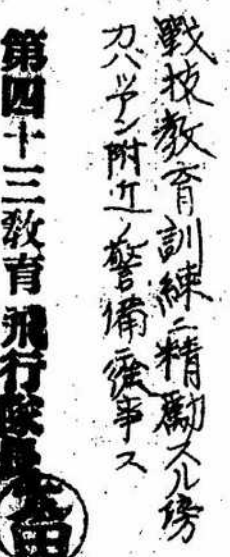 戰技教育訓練ニ精勵スル傍
カバツアン附近ノ警備ニ從事ス
第四十三教育飛行隊長
太田